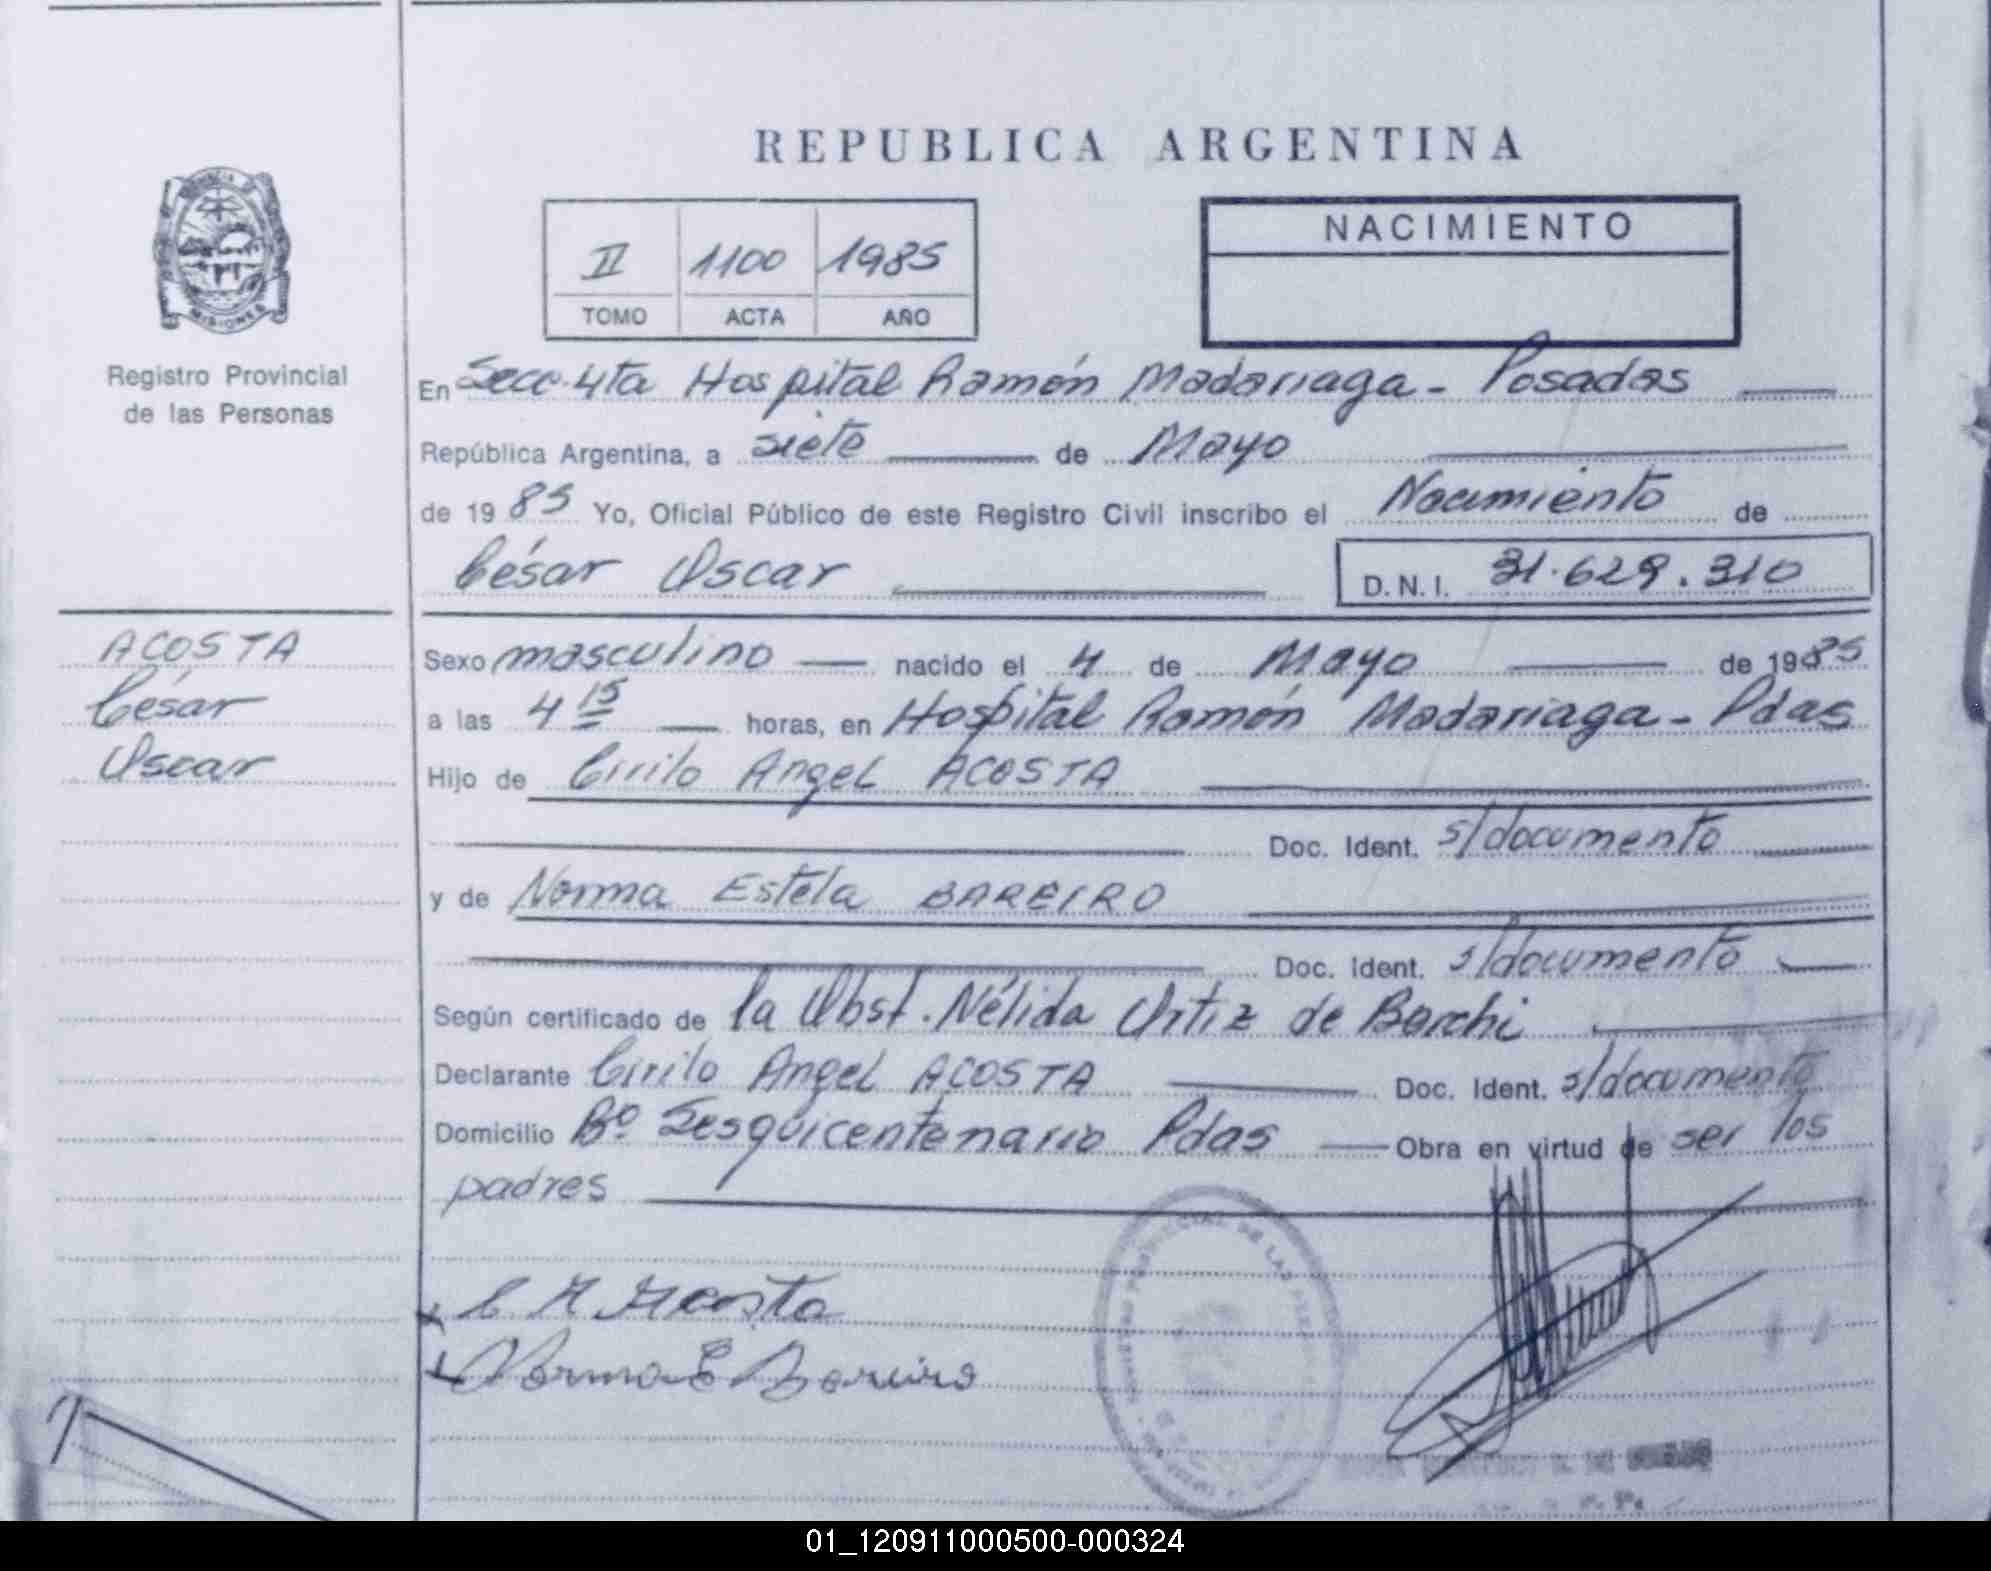 REPUBLICA ARGENTINA
II 1100 1985
TOMO ACTA AÑO
NACIMIENTO
MISIONES
Registro Provincial
de las Personas
En Secc. 4ta Hospital Ramón Madariaga - Posadas
República Argentina, a siete de Mayo
de 1985 Yo, Oficial Público de este Registro Civil inscribo el Nacimiento de
César Oscar D.N.I. 31.629.310
ACOSTA
César
Oscar
Sexo masculino nacido el 4 de Mayo de 1985
a las 4 15 horas, en Hospital Ramón Madariaga - Pdas
Hijo de Cirilo Angel ACOSTA
Doc. Ident. s/documento
y de Norma Estela BAREIRO
Doc. Ident. s/documento
Según certificado de la Obst. Nélida Ortiz de Borchi
Declarante Cirilo Angel ACOSTA Doc. Ident. s/documento
Domicilio Bº Sesquicentenario Pdas Obra en virtud de ser los
padres
C A Acosta
Norma E Bareiro
01_120911000500-000324